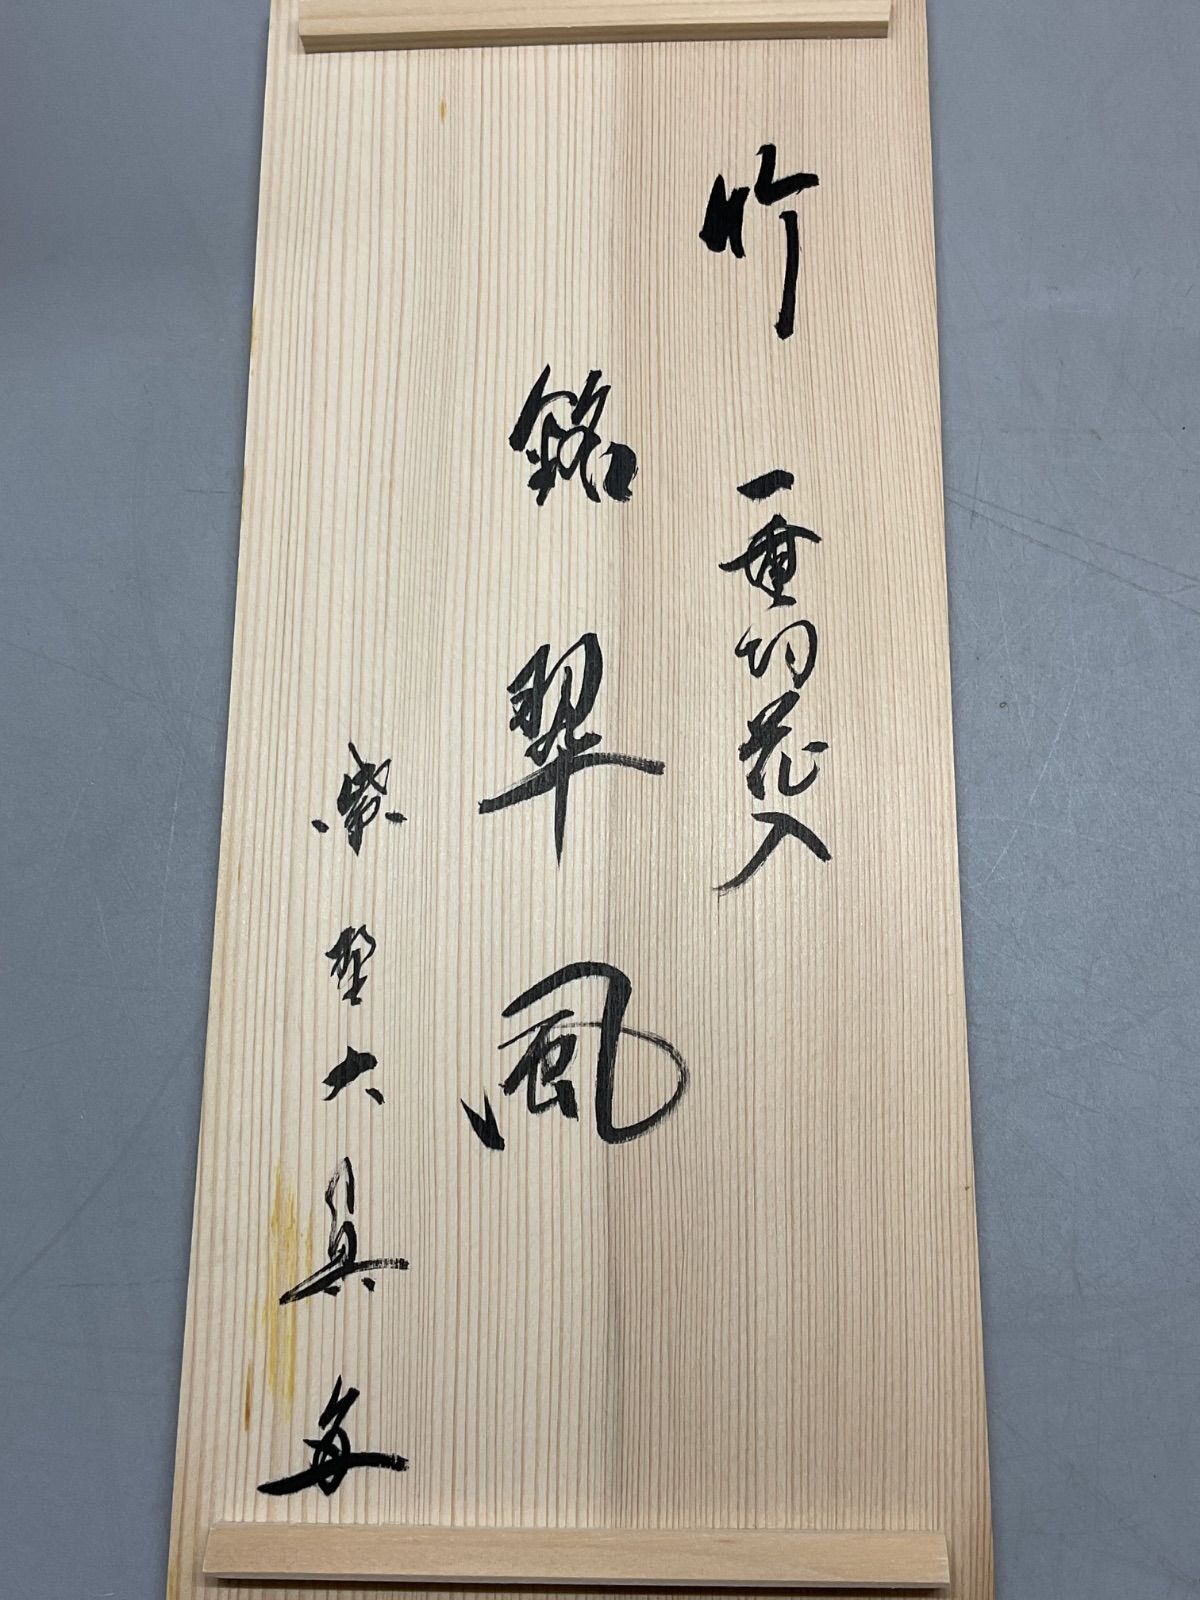 竹 一重切花入
銘 翠風
紫野大真